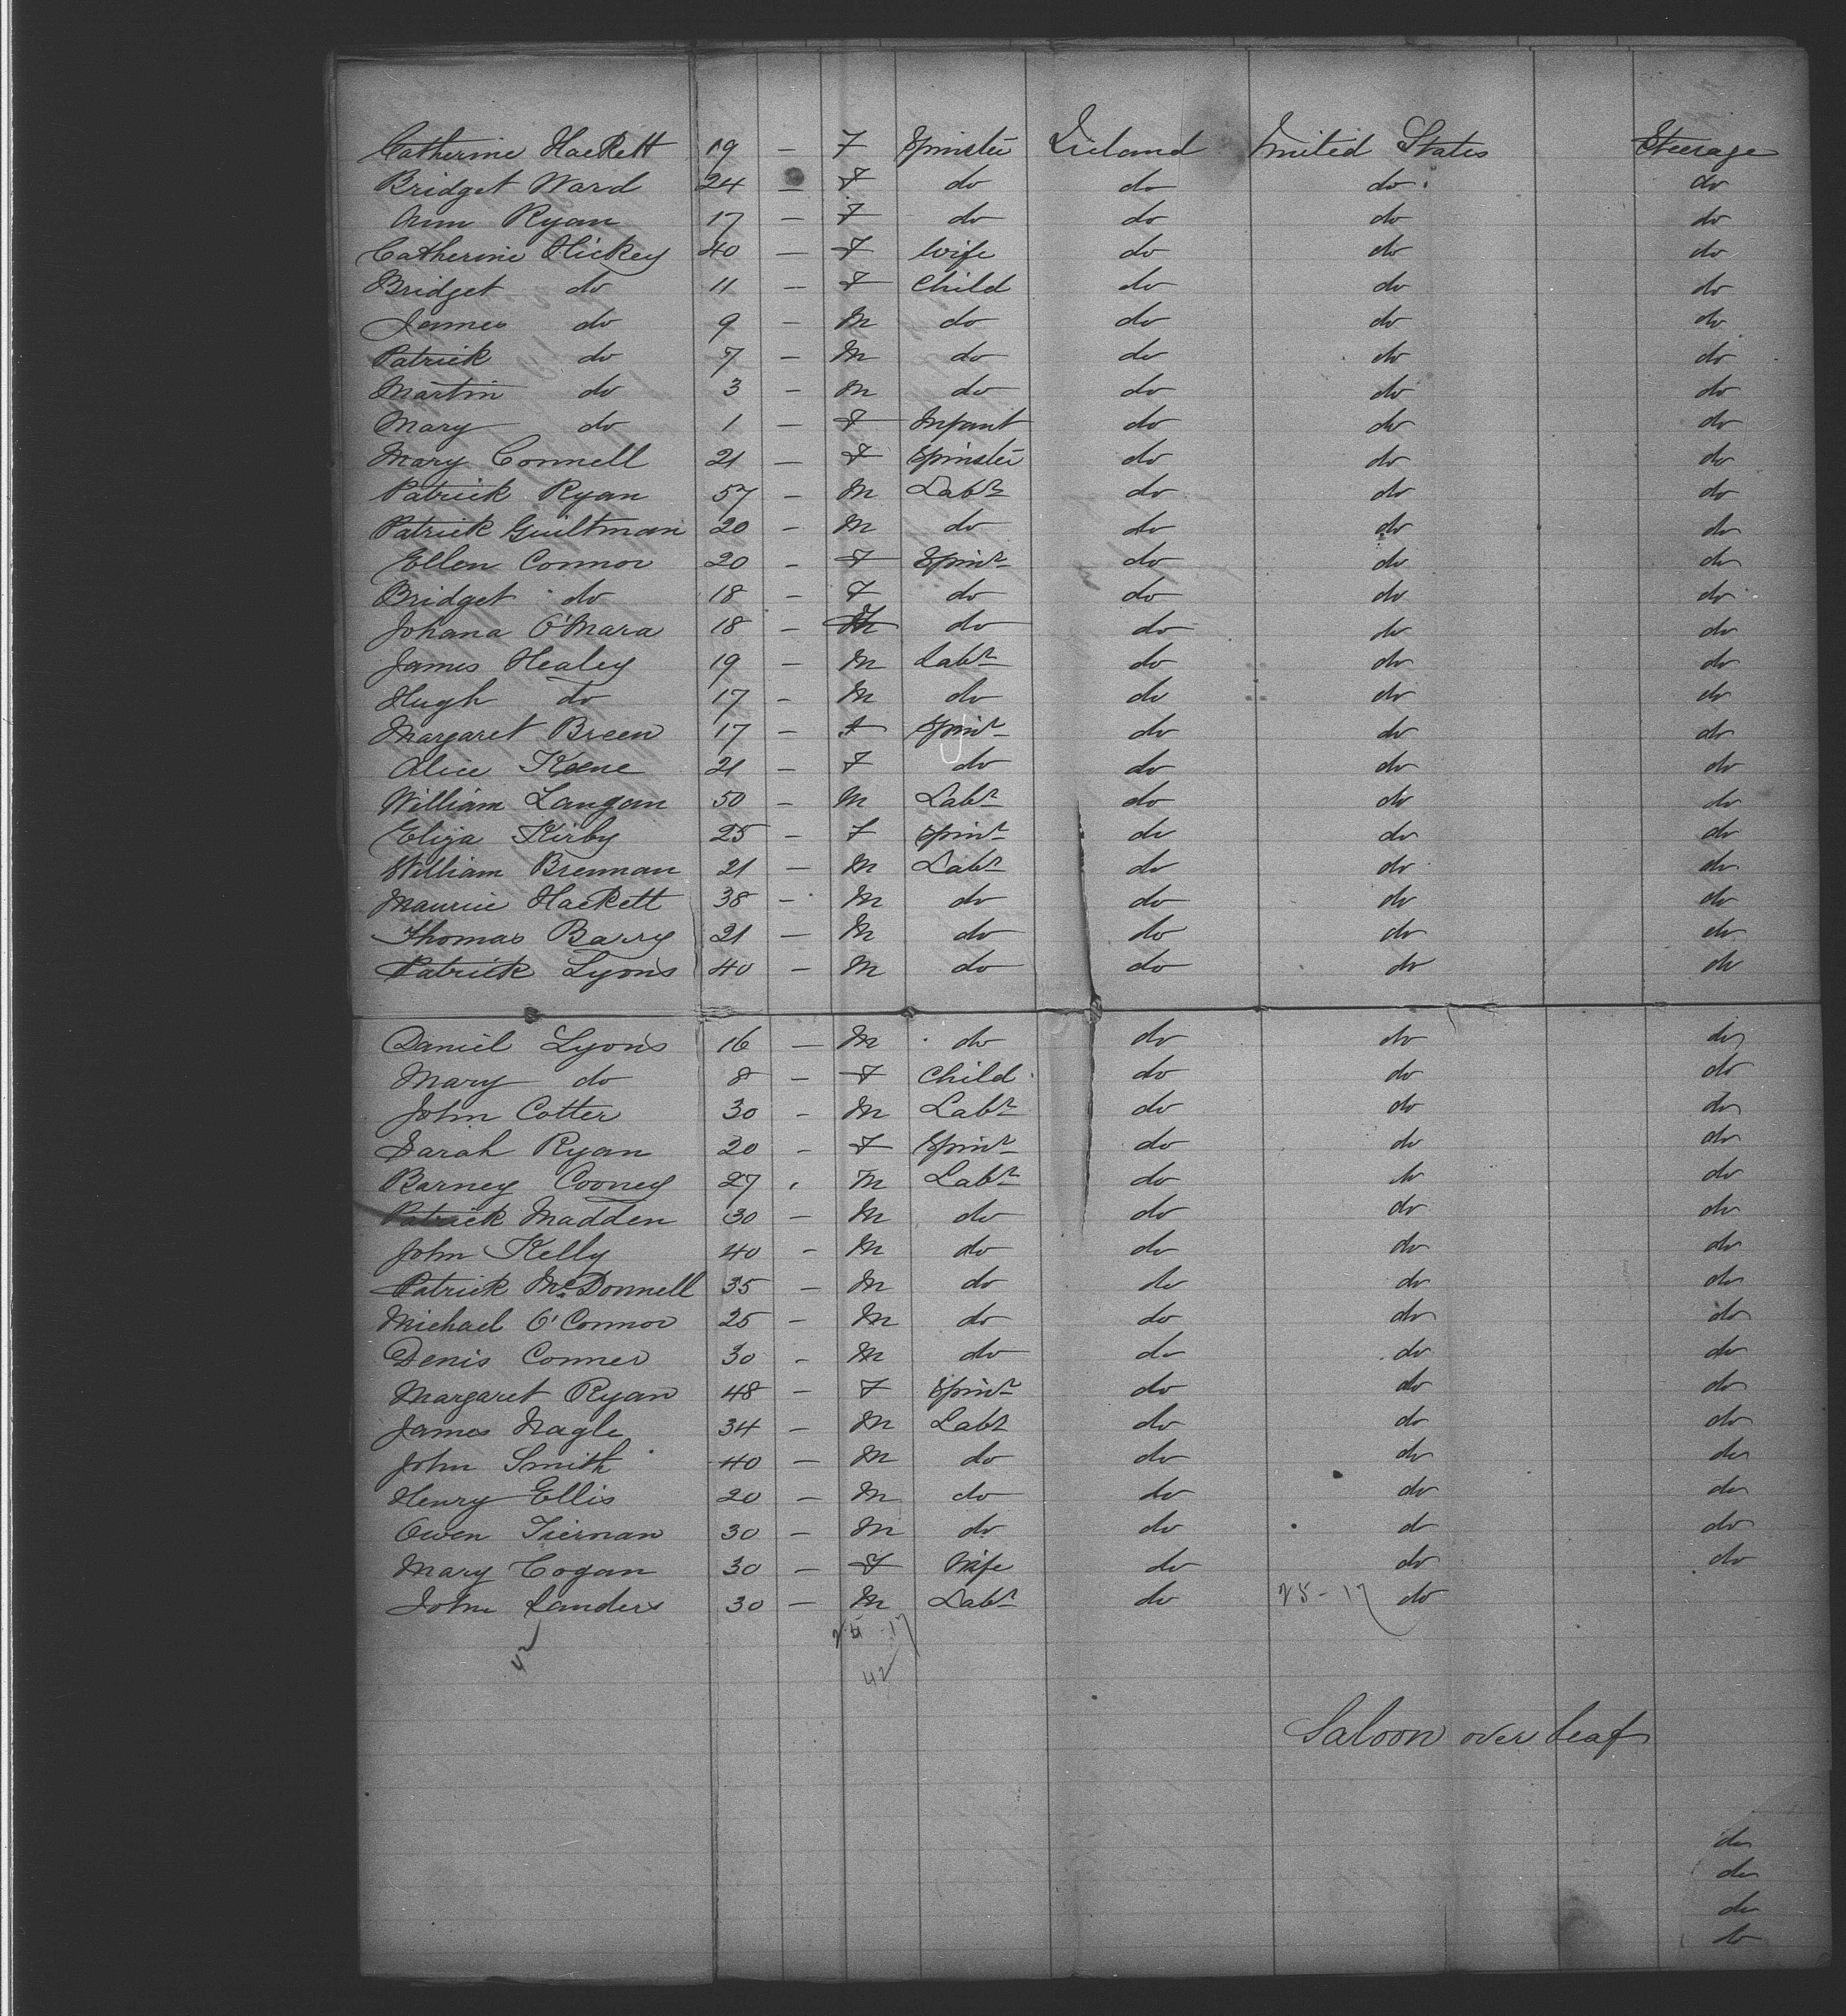 Catherine Hackett 19 - F Spinster Ireland United States Steerage
Bridget Ward 24 - F do do do do
Ann Ryan 17 - F do do do do
Catherine Hickey 40 - F Wife do do do
Bridget do 11 - F Child do do do
James do 9 - M do do do do
Patrick do 7 - M do do do do
Martin do 3 - M do do do do
Mary do 1 - F Infant do do do
Mary Connell 21 - F Spinster do do do
Patrick Ryan 57 - M Labr do do do
Patrick Guiltman 20 - M do do do do
Ellen Connor 20 - F Spinr do do do
Bridget do 18 - F do do do do
Johana O'Mara 18 - F do do do do
James Healey 19 - M Labr do do do
Hugh do 17 - M do do do do
Margaret Breen 17 - F Spinr do do do
Alice Keene 21 - F do do do do
William Langan 50 - M Labr do do do
Eliza Kirby 25 - F Spinr do do do
William Brennan 21 - M Labr do do do
Maurice Hackett 38 - M do do do do
Thomas Barry 21 - M do do do do
Patrick Lyons 40 - M do do do do
Daniel Lyons 16 - M do do do do
Mary do 8 - F Child do do do
John Cotter 30 - M Labr do do do
Sarah Ryan 20 - F Spinr do do do
Barney Cooney 27 - M Labr do do do
Patrick Madden 30 - M do do do do
John Kelly 40 - M do do do do
Patrick McDonnell 35 - M do do do do
Michael O'Connor 25 - M do do do do
Denis Conner 30 - M do do do do
Margaret Ryan 48 - F Spinr do do do
James Nagle 34 - M Labr do do do
John Smith 40 - M do do do do
Henry Ellis 20 - M do do do do
Owen Tiernan 30 - M do do do do
Mary Cogan 30 - F Wife do do do
John Landers 30 - M Labr do 25-17 do
25-17
42 42
Saloon over leaf
do
do
do
do